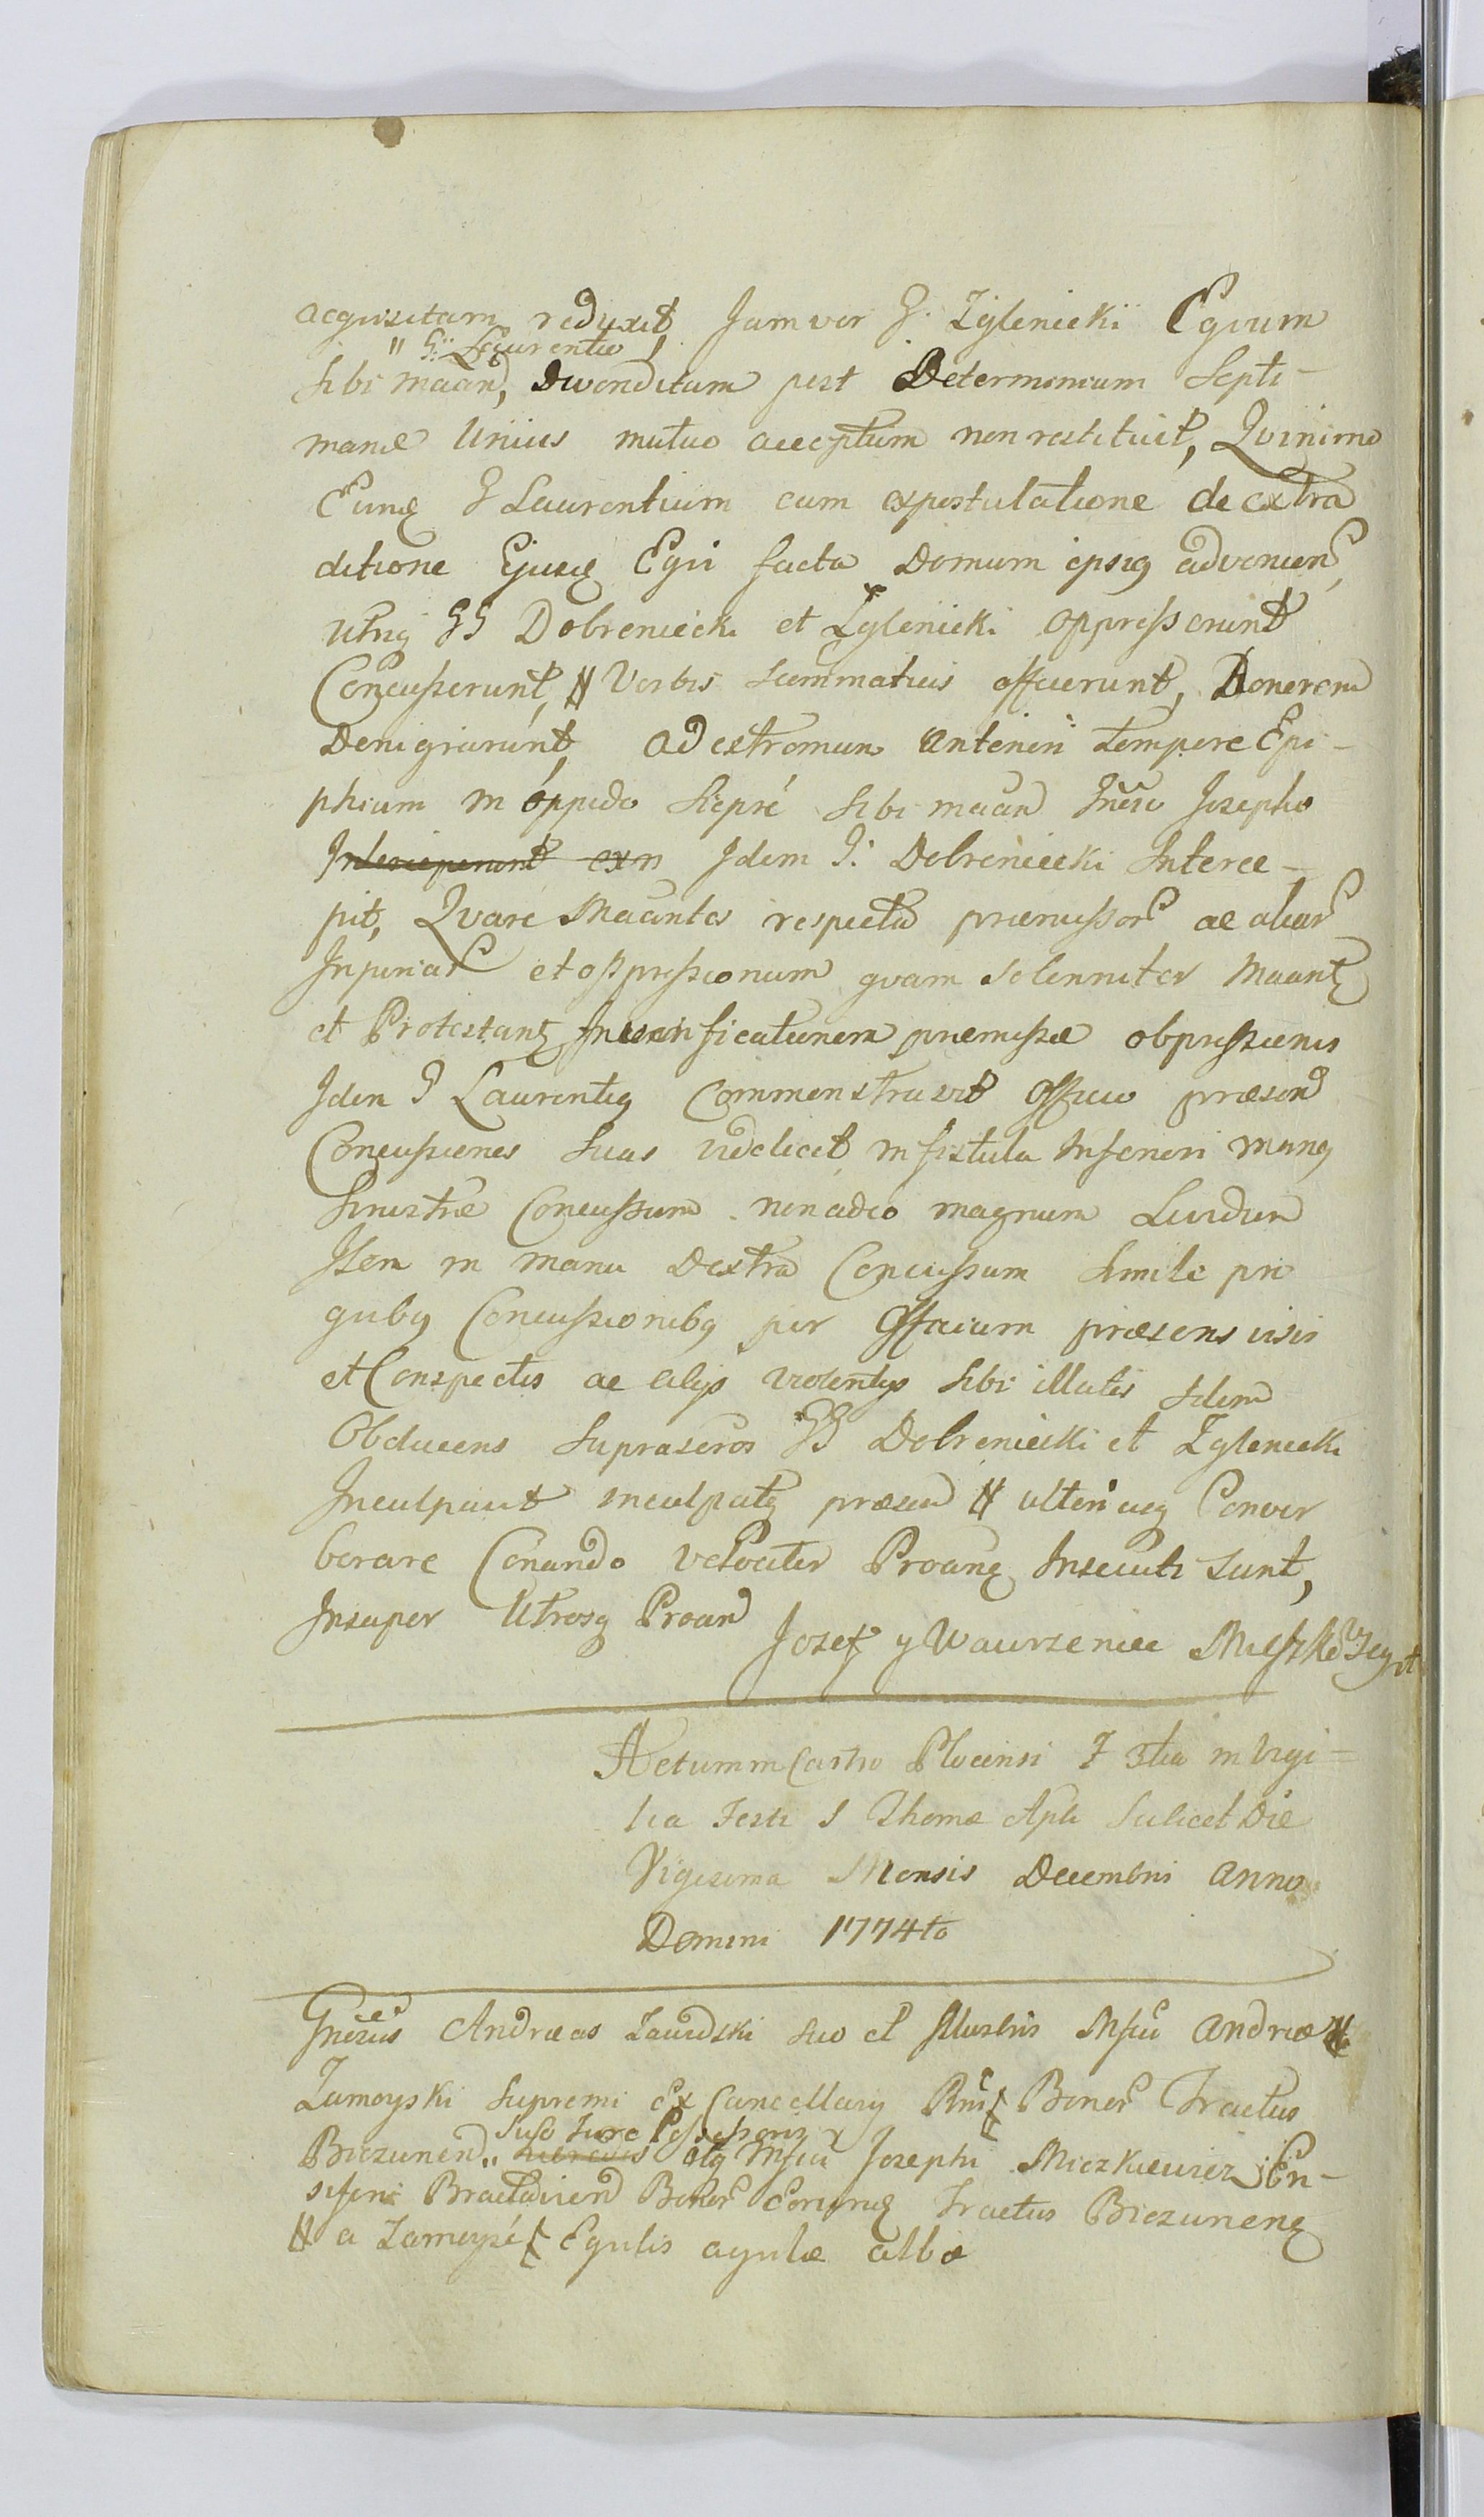 acquisitam reduxit Jam ver G. Zglenicki Equum
" G: Laurentio
sibi maan͂, Divenditum post Determinium Septi-
manæ Unius mutuo acceptum non restituit, Qvinimo
Eunq G Laurentium cum expostulatione de extra
ditione Ejusq Equi facta Domum ipsiq advenien
utriq GG Dobreniecki et Zglenicki oppresserunt
Concusserunt, # Verbis scommaticis affecerunt, Honorem
Denigrarunt, ad extremum anteriori tempore Epi-
phium in oppido Siepre sibi maan Gnēso Josepho
Intercieperunt exn Idem G: Dobreniecki Interce-
pit, Qvare Maantes respectu præmissor ac aliar
Injuriar et oppressionum quam solenniter Maant
et Protestant In verificationem præmissæ obpressionis
Idem G Laurentiq Commonstravit Officio præsen
Concussiones Suas videlicet in fistula Inferiori manq
Sinistræ Concussum non adeo magnum Lividum
Item in manu Dextra Concussum simile pri
quibq Concussionibq per Officium præsens visis
et Conspectis ac alijs violentijs sibi illatis Idem
Obducens Suprascros GG Dobreniecki et Zglenicki
Inculpavit inculpatq præsen # ulteriusq Conver
berare Conando velociter Proanq Insecuti sunt,
Insuper Utrosq Proan
Jozef y Wawrzeniec
Actum in Castro Plocensi F 3tia in Vigi=
lia Festi S Thomæ Apli Scilicet Die
Vigesima Mensis Decembris Anno
Domini 1774to
Gnēsus Andreas Zawidzki suo et Illustris Mfci Andreæ #
Zamoyski Supremi Ex Cancellarij Rni Bonor Tractus
Suo Jure Possessoris
Biezunen " hæredis atq Mfci Josephi Miczkiewicz En-
siferi Braclavien Bonor eorunq Tractus Biezunenq
# a Zamoyście Equitis aquilæ albæ